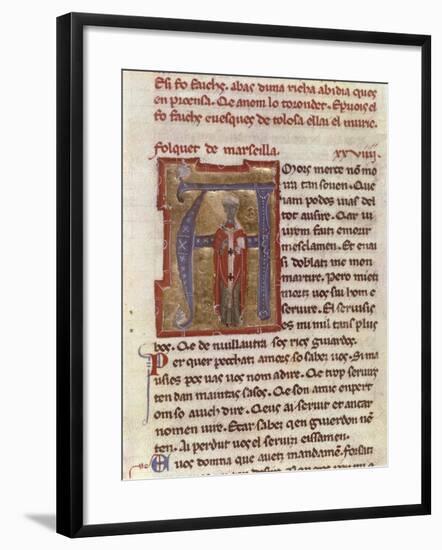 Esi fo fauchs. abas duna richa abidia ques
en proensa. Qe anom lo toronder. Epuois el
fo fauchs euesques de tolosa e llai el muric.
folquet de marseilla. xxviiij.
Mors merce nō mo
ira tan souen. Que
iam podos uias del
tot aucire. Car ui
urem faitz e morir
mesclamen. Er enai
si doblatz me mon
martire. Pero mietz
mortz uos sui hom e
seruire. El seruisis
es mi mil tans plus
bos. Qe de nuill autra ses rics guardos.
Per quer pechatz amors so sabez uos. Si ma
ucies pos uas uos nom adire. Qe trop seruir
ten dan maintas sasos. Qe son amic en pert
om so auch dire. Qeus ai seruir et ancar
nomen uire. Etar sabez qen guerdon nō
ten. Ai perdut uos el seruir eissamen.
E uos domna que auetz mandamē. forsatz